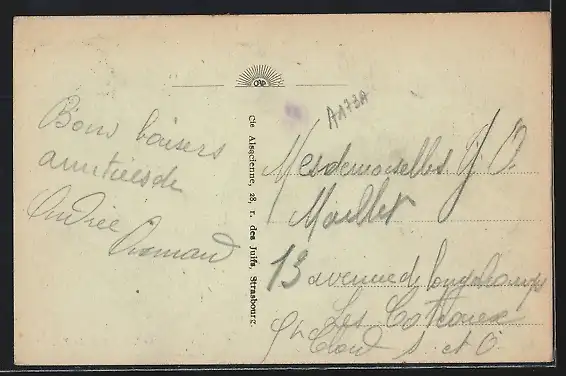 CAP
AA73A
Bons baisers
amitiés de
Andrée
Cie Alsacienne, 28, r. des Juifs, Strasbourg
Mesdemoiselles Y O
Maillet
13 avenue de Longchamps
Les Coteaux
St Cloud S. et O.